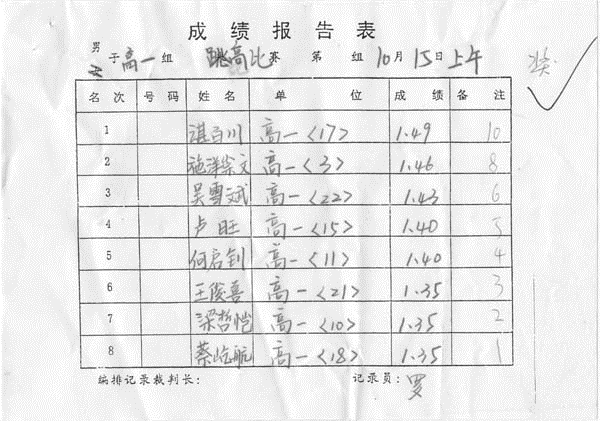 成绩报告表
男
女 子 高一 组 跳高比 赛 第 组 10 月 15 日 上午 奖
名次 号码 姓名 单位 成绩 备注
1 谌百川 高一<17> 1.49 10
2 施洋宗文 高一<3> 1.46 8
3 吴雪斌 高一<22> 1.43 6
4 卢旺 高一<15> 1.40 5
5 何启钊 高一<11> 1.40 4
6 王俊喜 高一<21> 1.35 3
7 梁哲恺 高一<10> 1.35 2
8 蔡屹航 高一<18> 1.35 1
编排记录裁判长： 记录员：罗